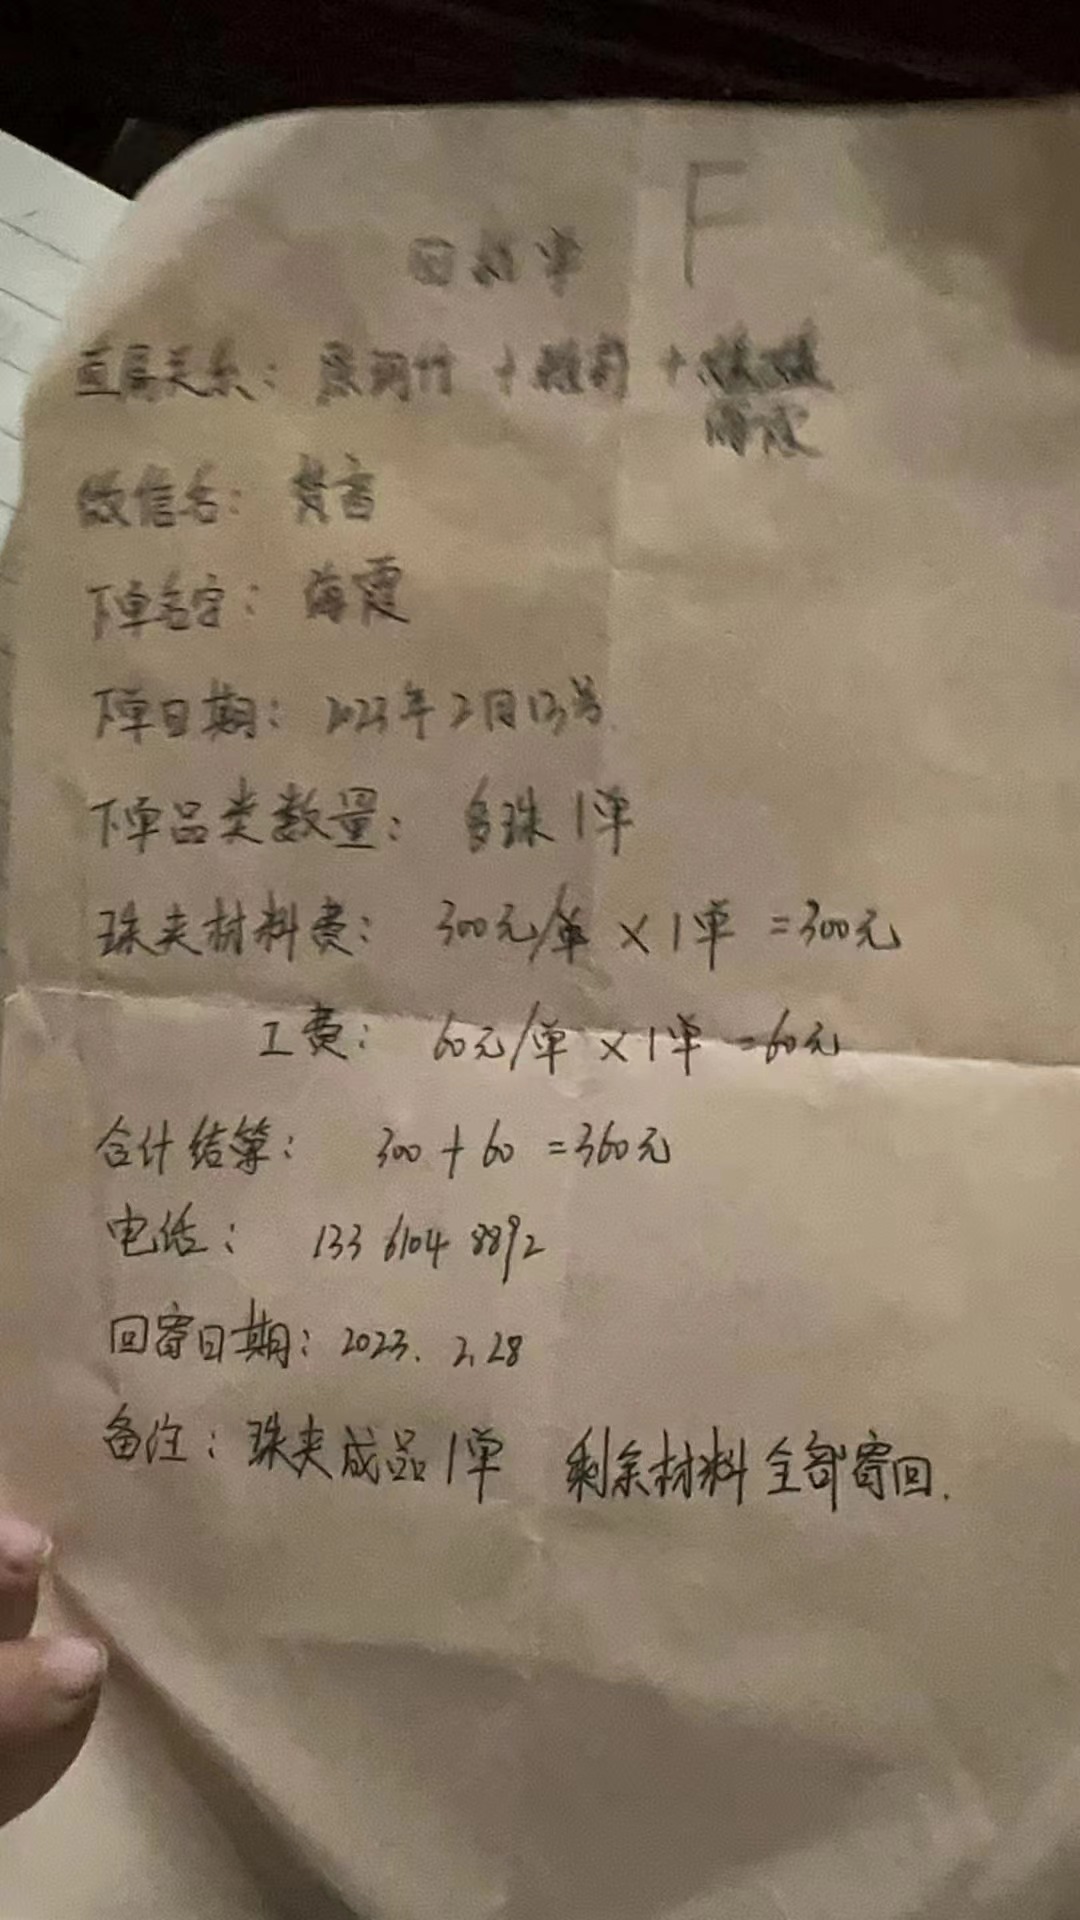 F
直属关系：
微信名：梵音
下单名字：海霞
下单日期：2023年2月13号.
下单品类数量：多珠1单
珠夹材料费：300元/单×1单=300元
工费：60元/单×1单=60元
合计结算：300+60=360元
电话：133 6104 8892
回寄日期：2023.2.28
备注：珠夹成品1单 剩余材料全部寄回.